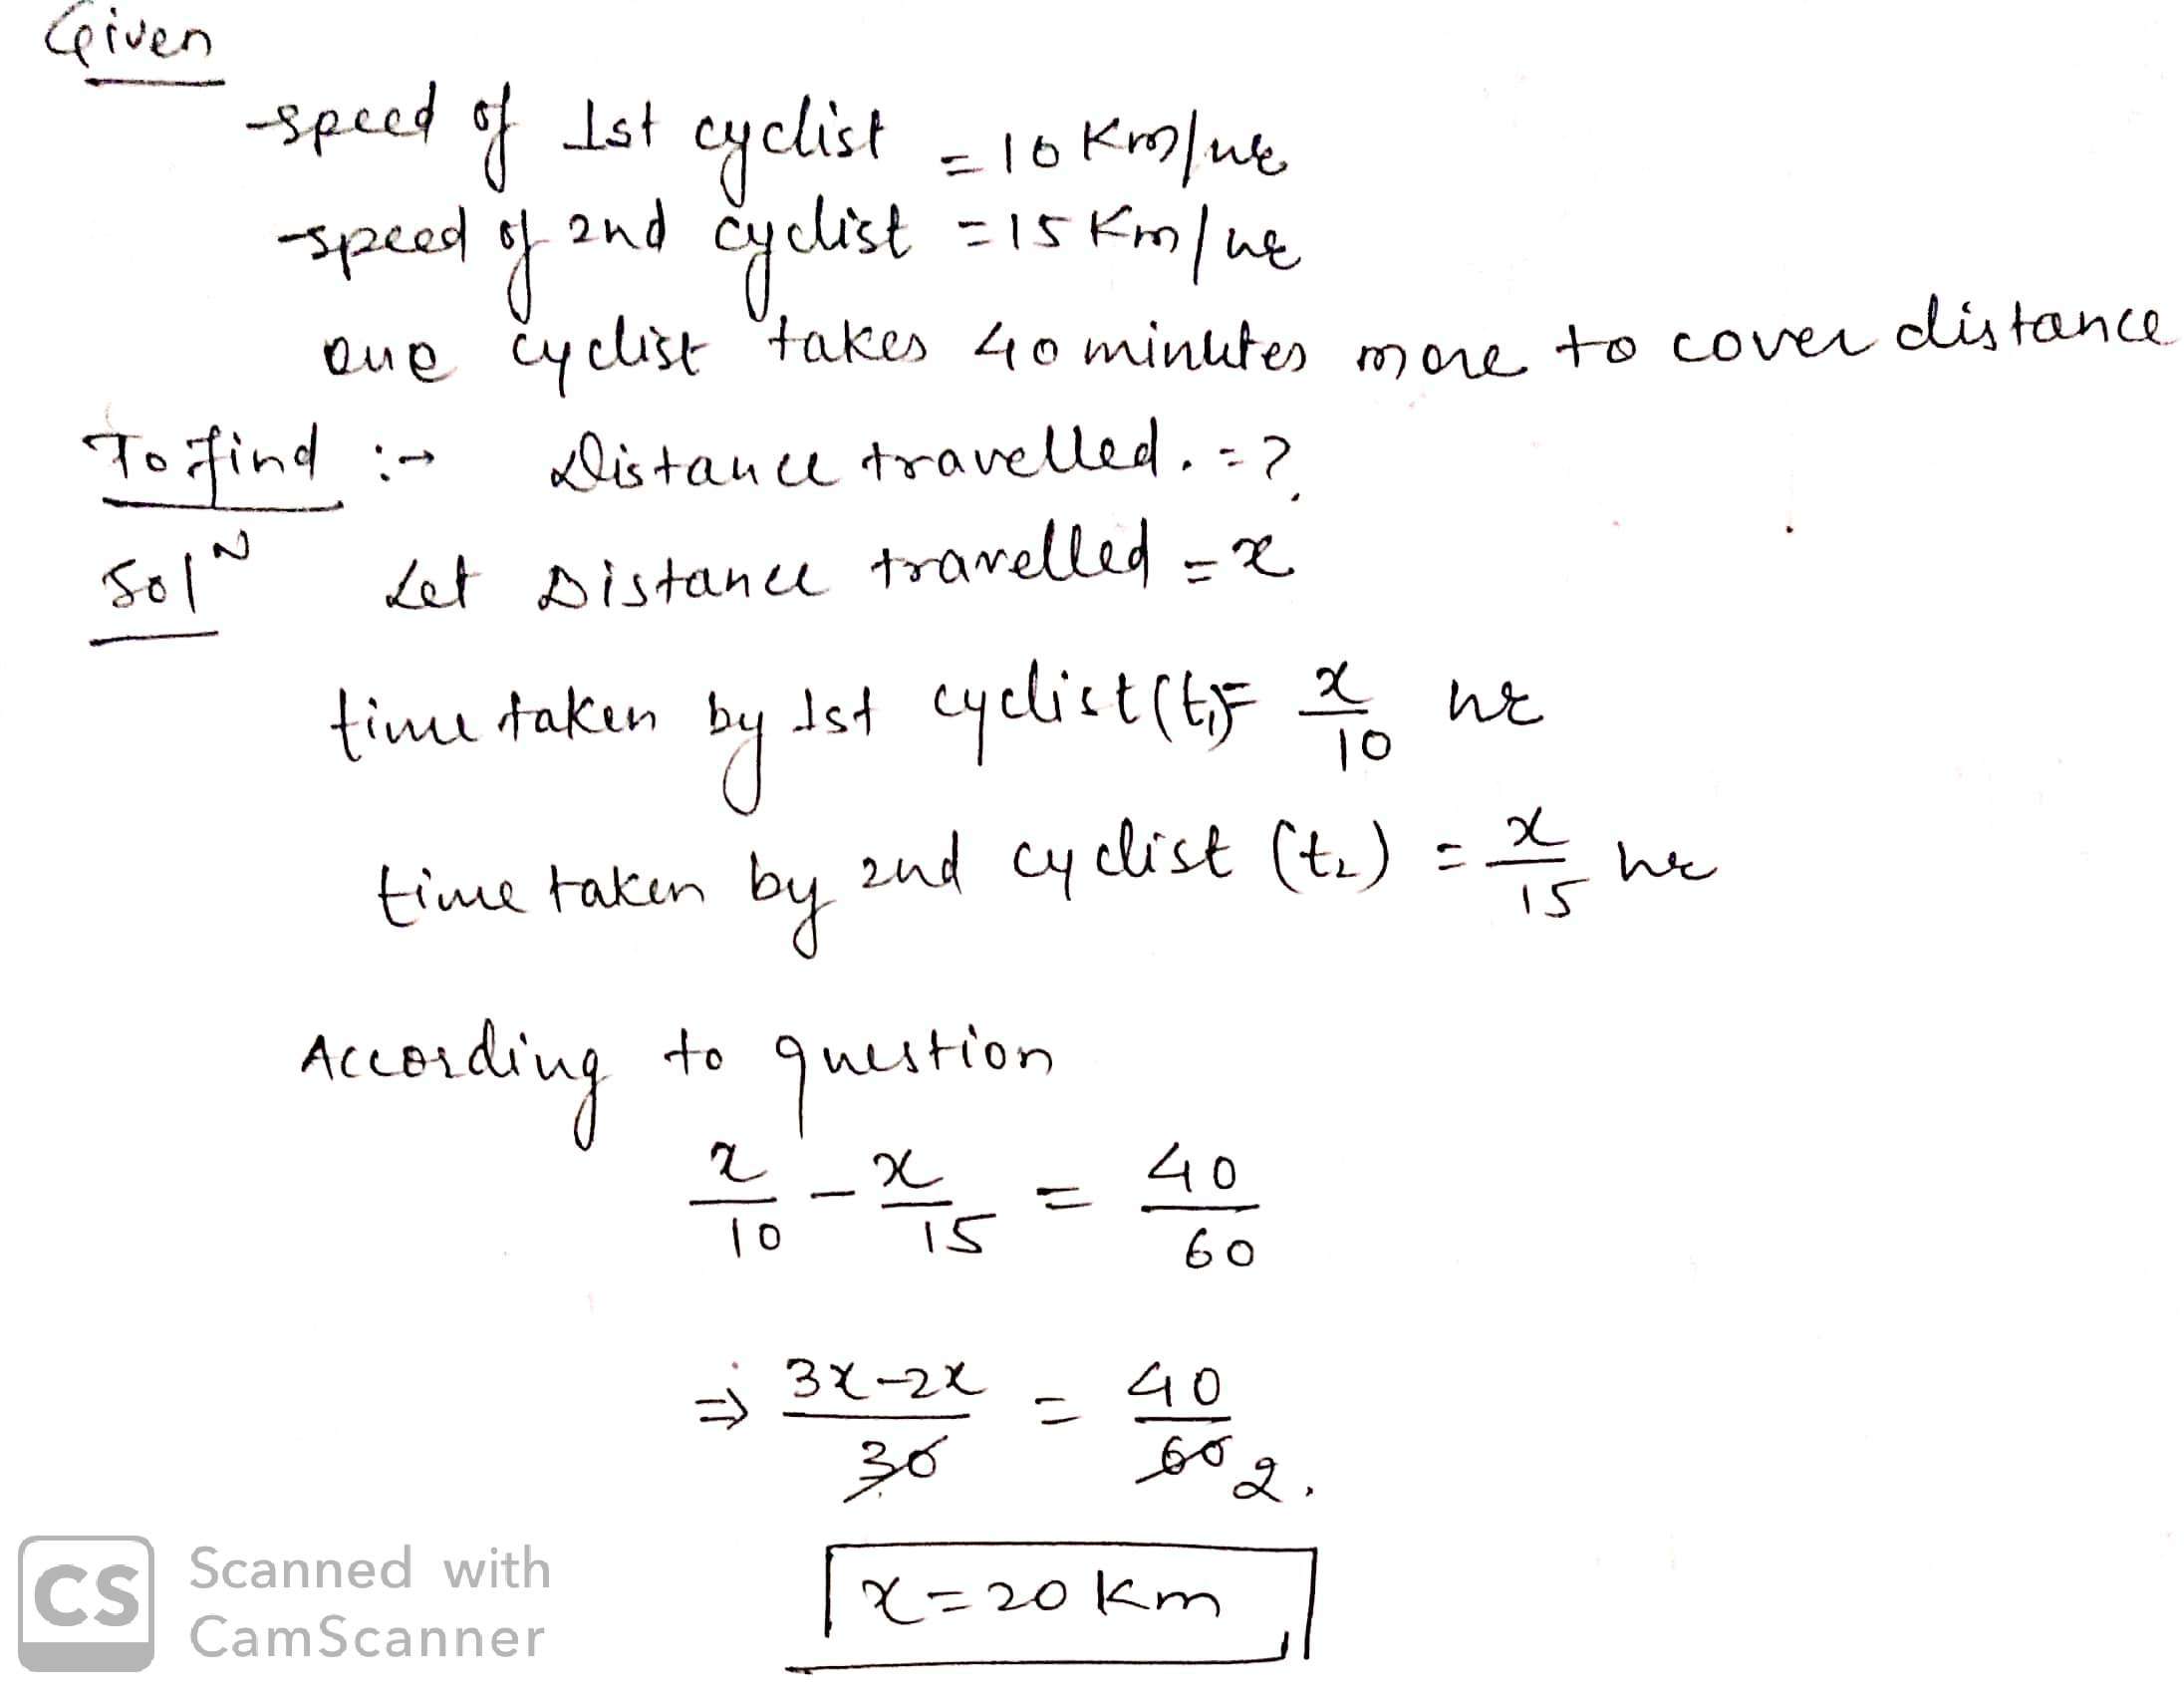 Given
speed of 1st cyclist = 10 Km/hr
speed of 2nd cyclist = 15 Km/hr
one cyclist takes 40 minutes more to cover distance
To find :→ Distance travelled. = ?
Solᴺ Let Distance travelled = x
time taken by 1st cyclist (t₁) = x/10 hr
time taken by 2nd cyclist (t₂) = x/15 hr
According to question
x/10 - x/15 = 40/60
⇒ 3x-2x/30 = 40/60 2.
x = 20 Km
CS Scanned with
CamScanner